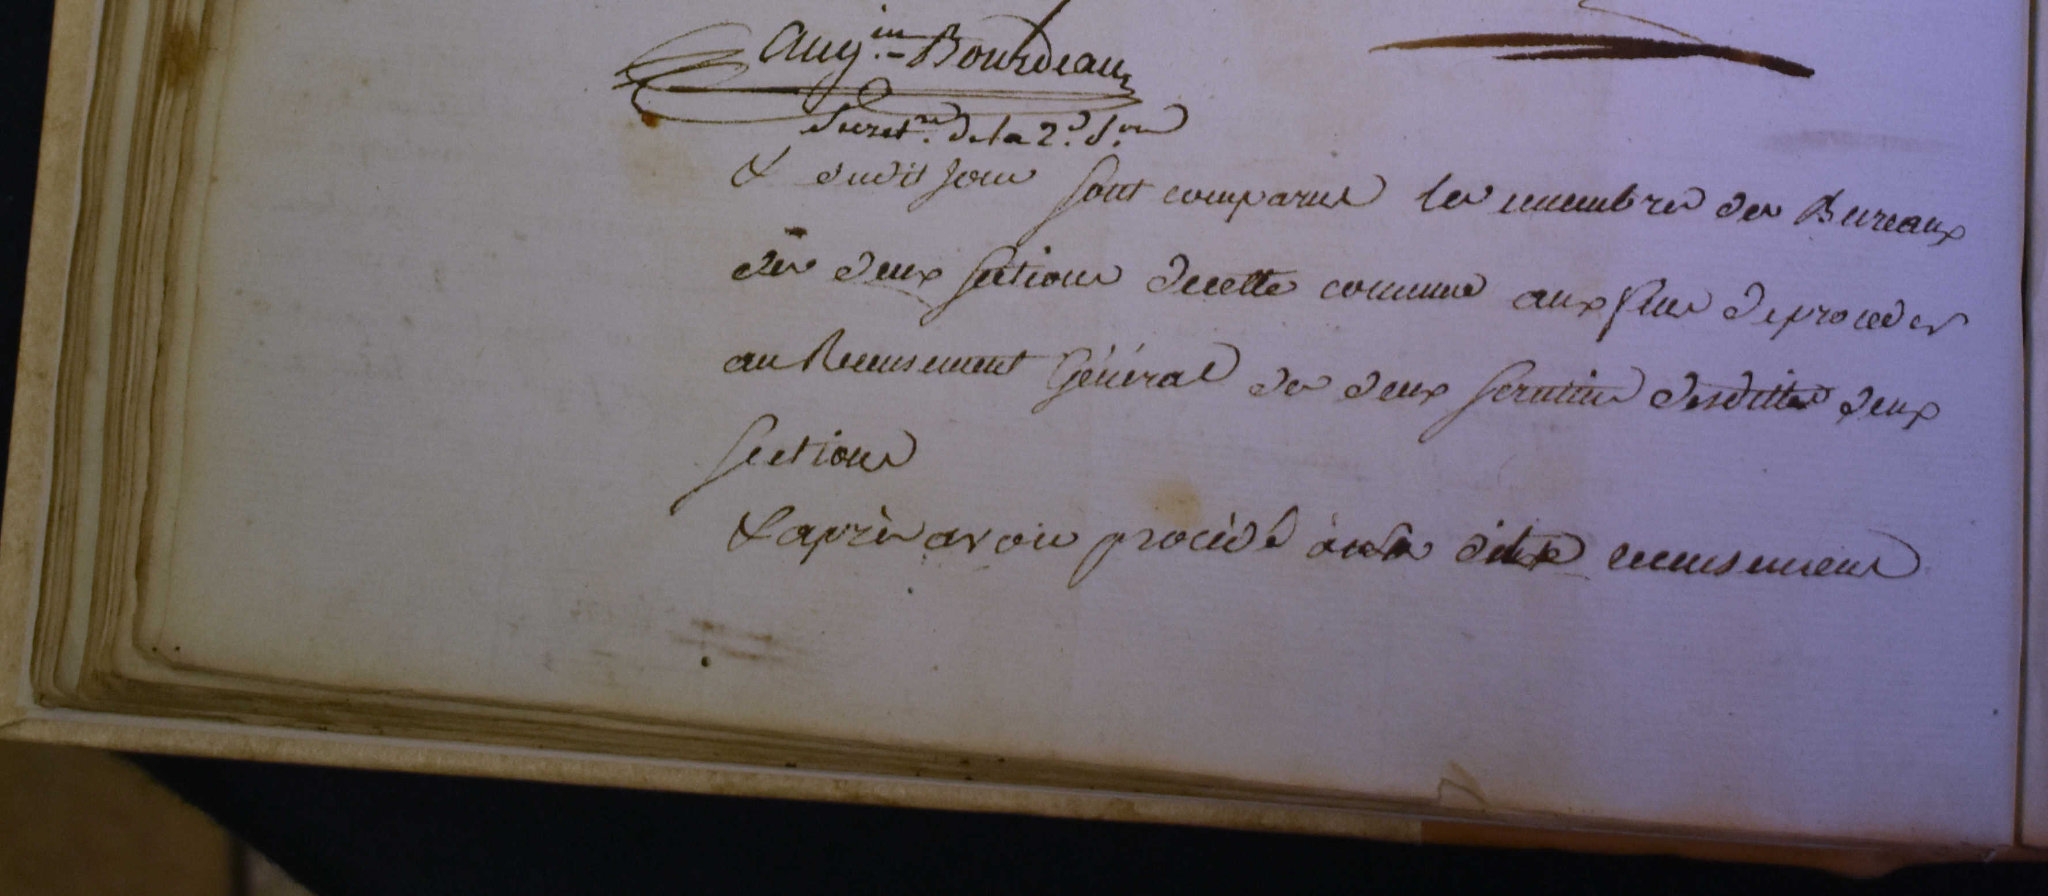 Aug.in Bourdeaux
Secret.re de la 2.e S.on
& dudit jour sont comparus les membres des Bureaux
des deux sections de cette commune aux fins de proceder
au Recensement Général des deux scrutins desdittes deux
sections
& après avoir procédé recensement